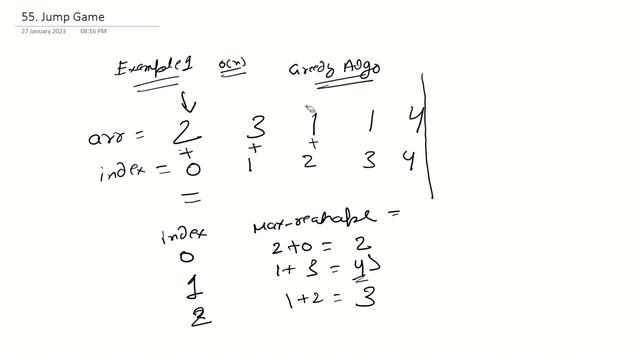 55. Jump Game
27 January 2023 08:16 PM
Example1 O(n) Greedy Algo
arr = 2 3 1 1 4
+ + +
index = 0 1 2 3 4
=
index Max-reahabe =
0 2+0 = 2
1 1+3 = 4
2 1+2 = 3